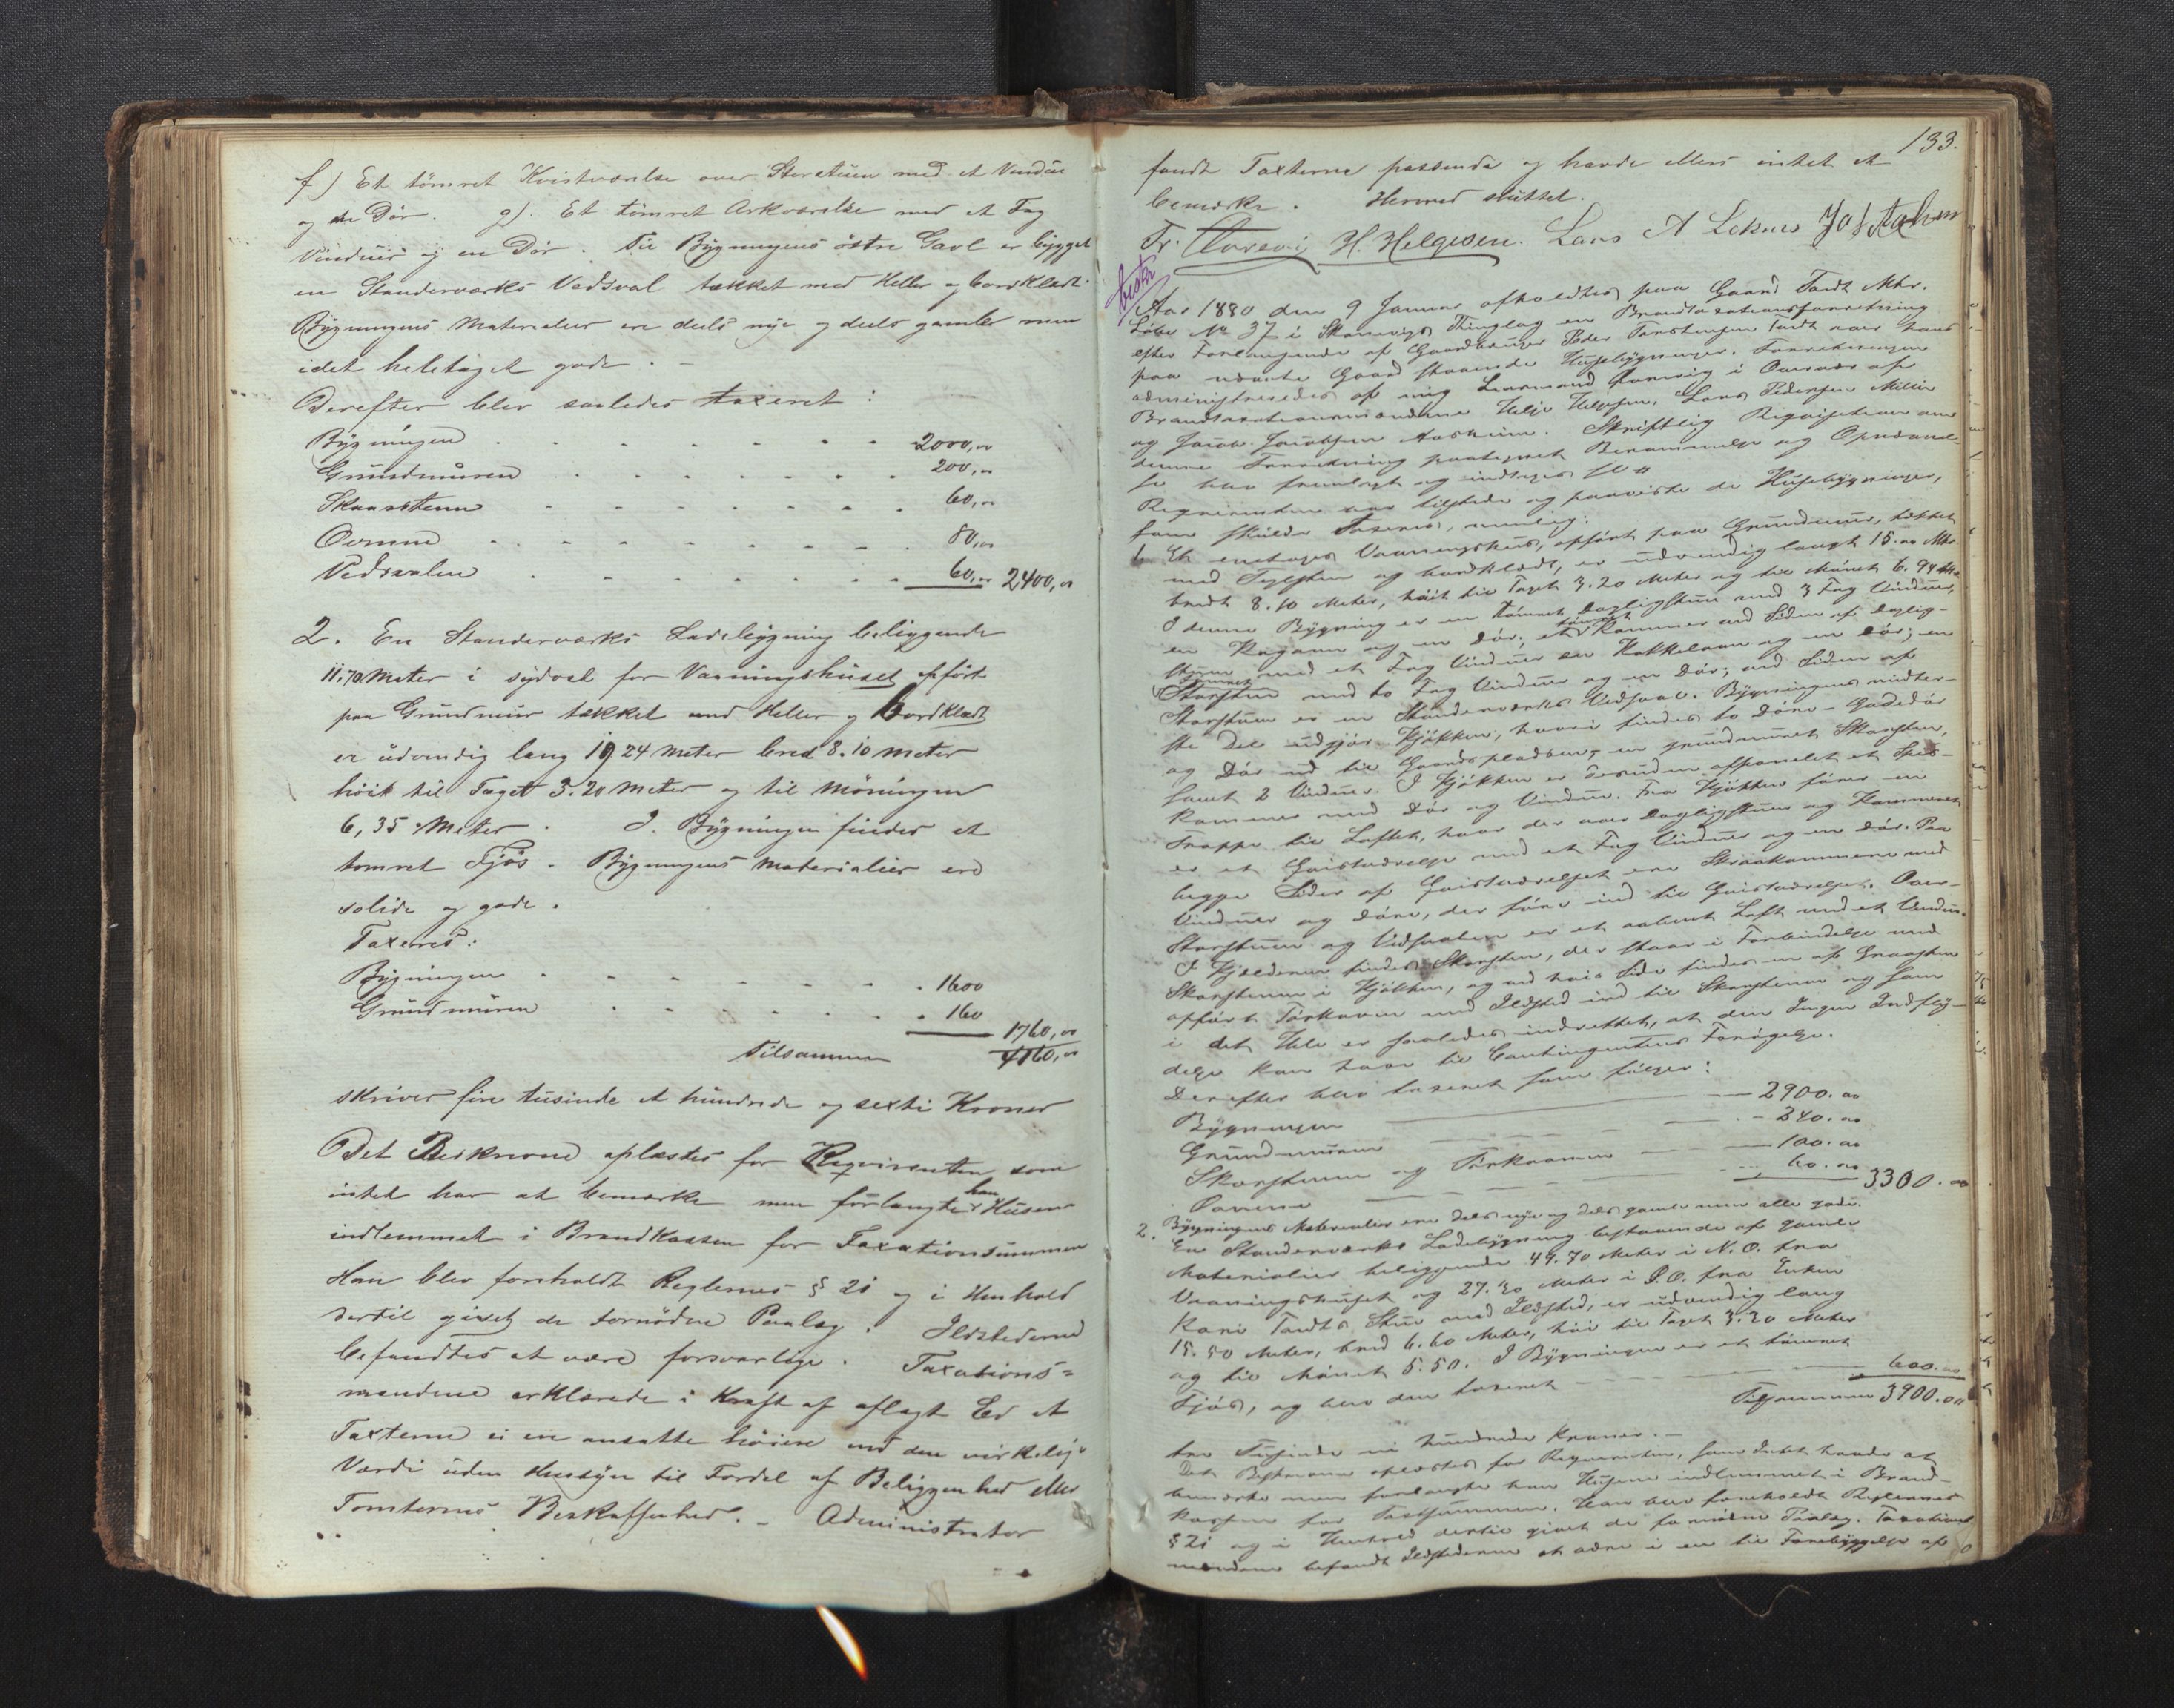 f) Et tömret Kvistværelse over Storstuen med et Vindue
og en Dör. g). Et tömret Arkværelse med et Fag
Vinduer og en Dör. Til Bygningens östre Gavl er bygget
en Standerværks Vedsval tækket med Heller og bordklædt.
Bygningens Materialier ere deels nye og deels gamle men
idet heletaget gode. –
Derefter blev saaledes taxeret:
Bygningen 2000,00
Grundmuren 200,00
Skorstenen 60,00
Ovnene 80,00
Vedsvalen 60,00 2400,00
2. En Standerværks Ladebygning beliggende
11,70 Meter i sydost for Vaaningshuset opfört
paa Grundmur tækket med Heller og bordklædt
er udvendig lang 19 24 Meter bred 8.10 Meter
höit til Taget 3.20 Meter og til Möningen
6,35 Meter. I Bygningen findes et
tömret Fjös. Bygningens Materialier ere
solide og gode.
Taxeres:
Bygningen 1600
Grundmuren 160
1760,00
Tilsammen 4160,00
skriver fire tusinde et hundrede og sexti Kroner
Det Beskrevne oplæstes for Reqvirenten som
intet har at bemærke men forlangte han Husene
indlemmet i Brandkassen for Taxationssummen
Han blev foreholdt Reglernes § 21 og i Henhold
dertil givet de fornödne Paalæg. Ildstederne
befandtes at være forsvarlige. Taxations=
mændene erklærede i Kraft af aflagt Ed at
Taxterne ei ere ansatte höiere end den virkelige
Værdi uden Hensyn til Fordel af Beliggenhed eller
Tomternes Beskaffenhed. – Administrator
133.
fandt Taxterne passende og havde ellers intet at
bemærke. Hermed sluttet.
H. Helgesen. Lars A
Aar 1880 den 9 Januar afholdtes paa Gaard Tandt Mtr.
Löbe No 37 i Skonevigs Thinglag en Brandtaxationsforretning
efter Forlangende af Gaardbruger Peder Torstensen Tandt over hans
paa nævnte Gaard staaende Husebygninger. Forretningen
administreredes af mig Lensmand i af
Brandtaxationsmændene Helje Heljesen, Lars Pedersen Milln
og Jacob Jacobsen Aasheim. Skriftlig Reqvisition om
denne Forretning paategnet Berammelse og Opnævnel-
se blev fremlagt og indtages
Reqvirenten var tilstede og paaviste de Husebygninger,
som skulde taxeres, nemlig:
1. Et enetages Vaaningshus, opfört paa Grundmur, tækket
med Teglsten og bordklædt, er udvendig langt 15.00 Mtr
bredt 8.10 Meter, höit til Taget 3.20 Meter og til Mönet 6.94 Mtr.
I denne Bygning er en tömret Dagligstue med 3 Fag Vinduer,
en Kogovn og en Dör; et tömret Kammer ved Siden af Daglig-
stuen med et Fag Vinduer en Kakkelovn og en Dör; en
tömret Storstue med to Fag Vinduer og en Dör; ved Siden af
Storstuen er en Standerværks Vedsval. Bygningens midter-
ste Del udgjör Kjökken, hvori findes to Döre – Gadedör
og Dör ud til Gaardspladsen, en grundmuret Skorsten,
samt 2 Vinduer. I Kjökken er desuden afpanelet et Spis-
kammer med Dör og Vindue. Fra Kjökken förer en
Trappe til Loftet, hvor der over Dagligstuen og Kammeret
er et Qvistværelse med et Fag Vinduer og en Dör. Paa
begge Sider af Qvistværelset ere Skraakammere med
Vinduer og Döre, der före ind til Qvistværelset. Over
Storstuen og Vedsvalen er et aabent Loft med et Vindue.
I Kjælderen findes Skorsten, der staar i Forbindelse med
Skorstenen i Kjökken, og ved hvis Side findes en af Graasten
opfört Törkeovn med Ildsted ind til Skorstenen og som
i det Hele er saaledes indrettet, at den Ingen Indfly-
delse kan have til Contingentens Forögelse.
Derefter blev taxeret som fölger:
Bygningen 2900.00
Grundmuren 240.00
Skorstenen og Törkeovnen 100.00
Ovnene 60.00 3300.00
Bygningens Materialier ere dels nye og dels gamle men alle gode.
2. En Standerværks Ladebygning bestaaende af gamle
Materialier beliggende 44.70 Meter i N.O. fra
Vaaningshuset og 27.20 Meter i S.O. fra Enken
Kari Tandts Stue med Ildsted, er udvendig lang
15.50 Meter, bred 6.60 Meter, höi til Taget 3.20 Meter
og til Mönet 5.50. I Bygningen er et tömret
Fjös, og blev den taxeret 600.00
Tilsammen 3900.00
tre Tusinde ni hundrede Kroner. –
Det Beskrevne oplæstes for Reqvirenten, som Intet havde at
bemærke men forlangte han Husene indlemmet i Brand-
kassen for Taxtsummen. Han blev foreholdt Reglernes
§ 21 og i Henhold dertil givet de fornödne Paalæg. Taxations
mændene befandt Ildstederne at være i en til Forebyggelse af